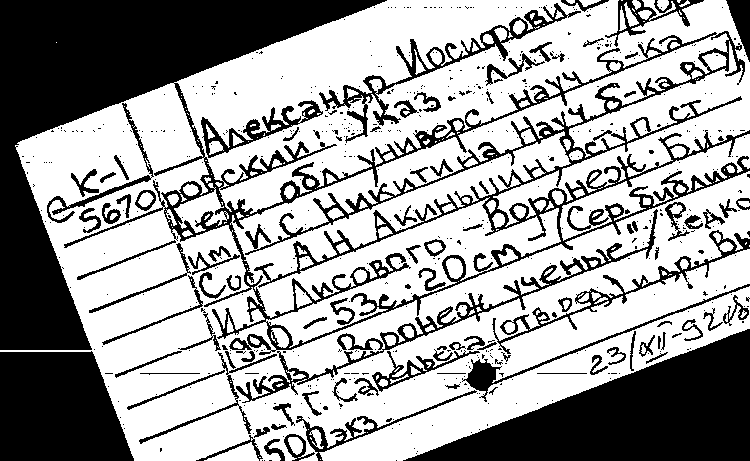 Александр Иосифович
ровский: Указ. лит. / Вор
неж. обл. универс. науч. б-ка
им. И.С. Никитина, Науч. б-ка ВГУ;
Сост. А.Н. Акиньшин; Вступ. ст
И.А. Лисового. - Воронеж: Б.и.,
1990. - 53с.; 20см. - (Сер. библиог
указ. "Воронеж. ученые" / Редко
...Т.Г. Савельева (отв. ред.) и др.; Вы
500экз.
К-1
5670
23/XII-92